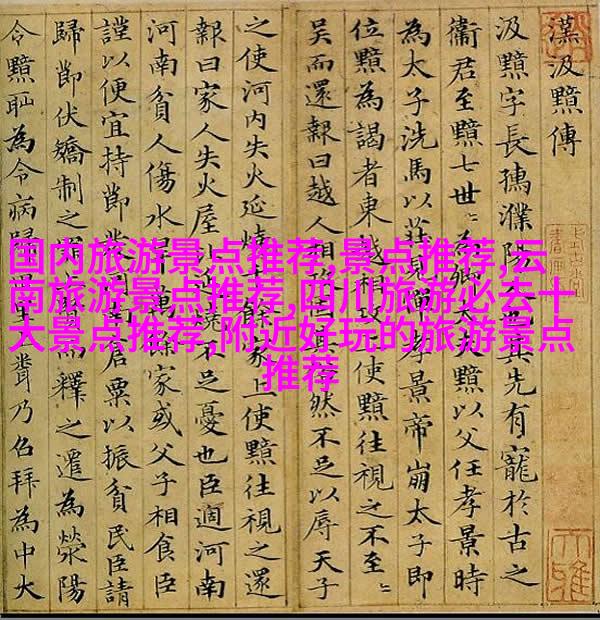 漢汲黯傳
汲黯字長孺濮陽人也其先有寵於古之
衛君至黯七世〻為卿大夫黯以父任孝景時
為太子洗馬以莊見憚孝景帝崩太子即
位黯為謁者東越相攻上使黯往視之不至〻
吳而還報曰越人相攻其然不足以辱天子
之使河内失火延燒千餘家上使黯往視之還
報曰家人失火屋比延燒不足憂也臣適河南
河南貧人傷水旱萬餘家或父子相食臣
謹以便宜持節發河南倉粟以振貧民臣請
歸節伏矯制之罪上而釋之遷為滎陽
令黯恥為令病歸乃召拜為中大
国内旅游景点推荐,景点推荐,云
南旅游景点推荐,四川旅游必去十
大景点推荐,附近好玩的旅游景点
推荐